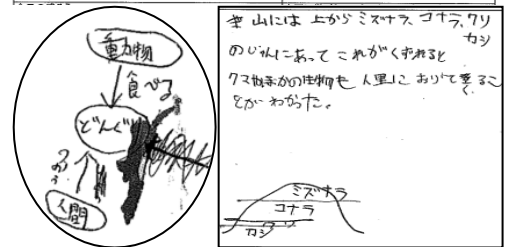 動物
食べる
どんぐり
人間
山には 上からミズナラ、コナラ、クリ
カシ
のじゅんにあって これがくずれると
クマやほかの生物も 人里におりて来るこ
とがわかった。
ミズナラ
コナラ
クリ
カシ